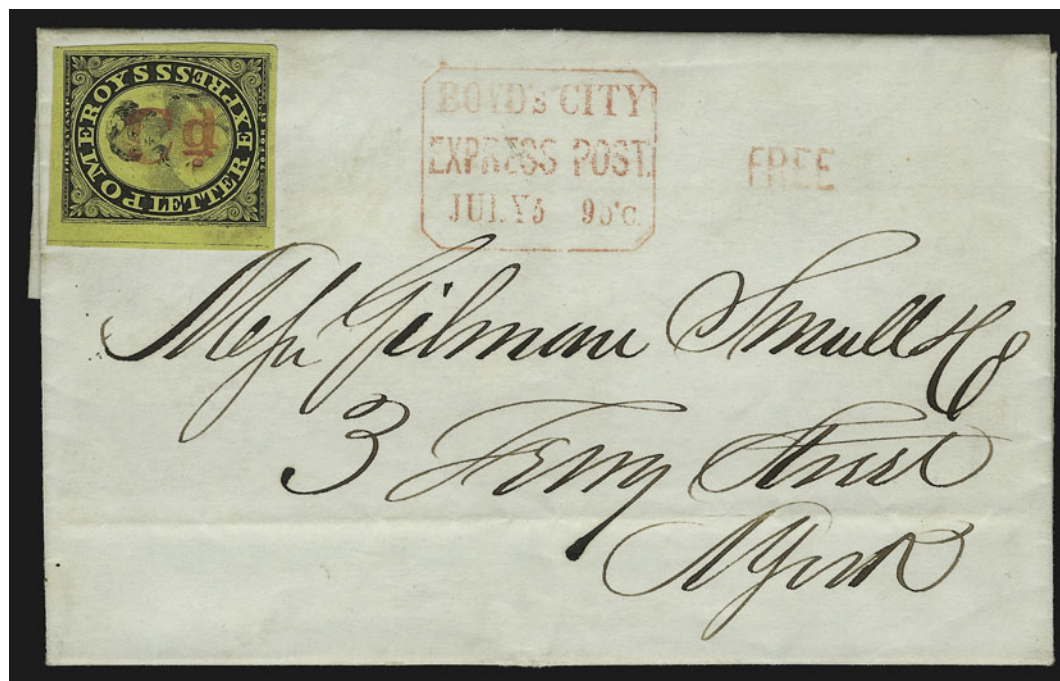 POMEROYS LETTER EXPRESS
FREE STAMP
Cd
BOYD's CITY
EXPRESS POST.
JULY 5 9 o'c.
FREE
Messrs Gilman Smull & Co
3 Ferry Street
NYork